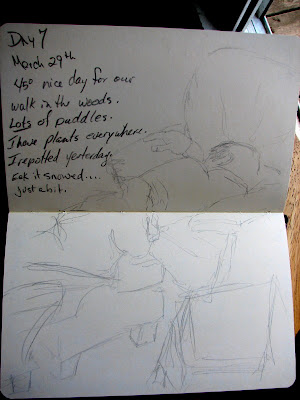 Day 7
March 29th
45° nice day for our
walk in the woods.
Lots of puddles.
I have plants everywhere.
I repotted yesterday.
Eek it snowed....
just a bit.